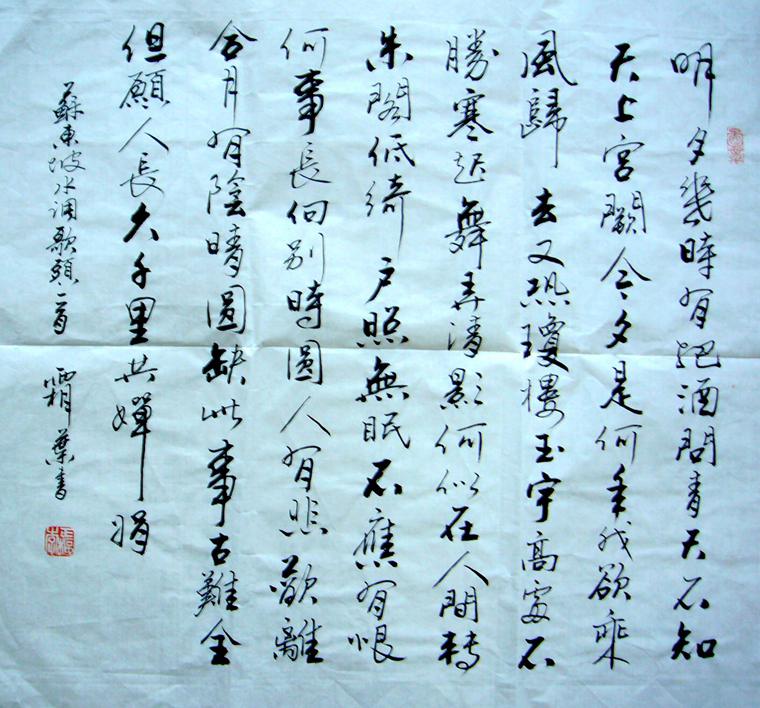 明月幾時有把酒問青天不知
天上宮闕今夕是何年我欲乘
風歸去又恐瓊樓玉宇高處不
勝寒起舞弄清影何似在人間轉
朱閣低綺戶照無眠不應有恨
何事長向別時圓人有悲歡離
合月有陰晴圓缺此事古難全
但願人長久千里共嬋娟
蘇東坡水调歌頭一首 霜葉書